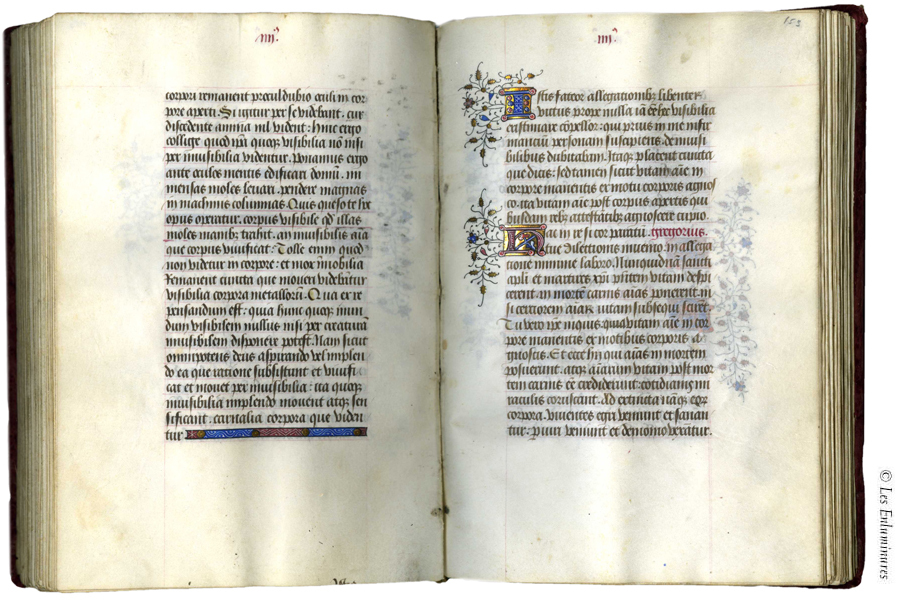 IIII
corpori remanent procul dubio oculi in cor
pore aperti. Si igitur per se videbant. cur
discedente anima nil vident: hinc ergo
collige quod ip̄a quoq; visibilia nō nisi
per inuisibilia videntur. Ponamus ergo
ante oculos mentis edificari domū. in
mensas moles leuari. pendere magnas
in machinis columnas. Quis queso te hoc
opus operatur. corpus visibile qd̄ illas
moles manib; trahit. an inuisibilis aīa
que corpus viuificat: Tolle enim quod
non videtur in corpore: et mox īmobilia
remanent cuncta que moueri videbātur
visibilia corpora metallorū. Qua ex re
pensandum est. quia hunc quoq; mun
dum visibilem nullus nisi per creaturā
inuisibilem disponere potest. Nam sicut
omnipotens deus aspirando vel implen
do ea que ratione subsistunt et viuifi
cat et mouet per inuisibilia: ita quoq;
inuisibilia implendo mouent atq; sen
sificant. carnalia corpora que viden
tur
IIII
153
Istis fateor allegationib; libenter
victus prope nulla iā visibilia
estimare cōpellor: qui prius in me infir
mantiū personam suscipiens. de inuisi
bilibus dubitabam. Itaq; placent cuncta
que dicis: sed tamen sicut vitam aīe in
corpore manentis ex motu corporis agnos
co. ita vitam aīe post corpus apertis qui
busdam reb; attestātib; agnoscere cupio.
Hac in re si cor paratū. Gregorius.
tue dilectionis inuenio. in allega
tione minime laboro. Nunquidnā sancti
apl̄i et martires xp̄i p̄ntem vitam despi
cerent. in mortē carnis aīas ponerent. ni
si certiorem aīarū vitam subsequi scirēt:
Tu vero ipse inquis. quia vitam aīe in cor
pore manentis ex motibus corporis a
gnoscis. Et ecce hii qui aīas in mortem
posuerunt. atq; aīarum vitam post mor
tem carnis eē crediderunt: cotidianis mi
raculis coruscant. Ad extincta nāq; eoꝝ
corpora viuentes egri veniunt et sanan
tur: piuri veniunt et demonio vexātur.
© Les Enluminures